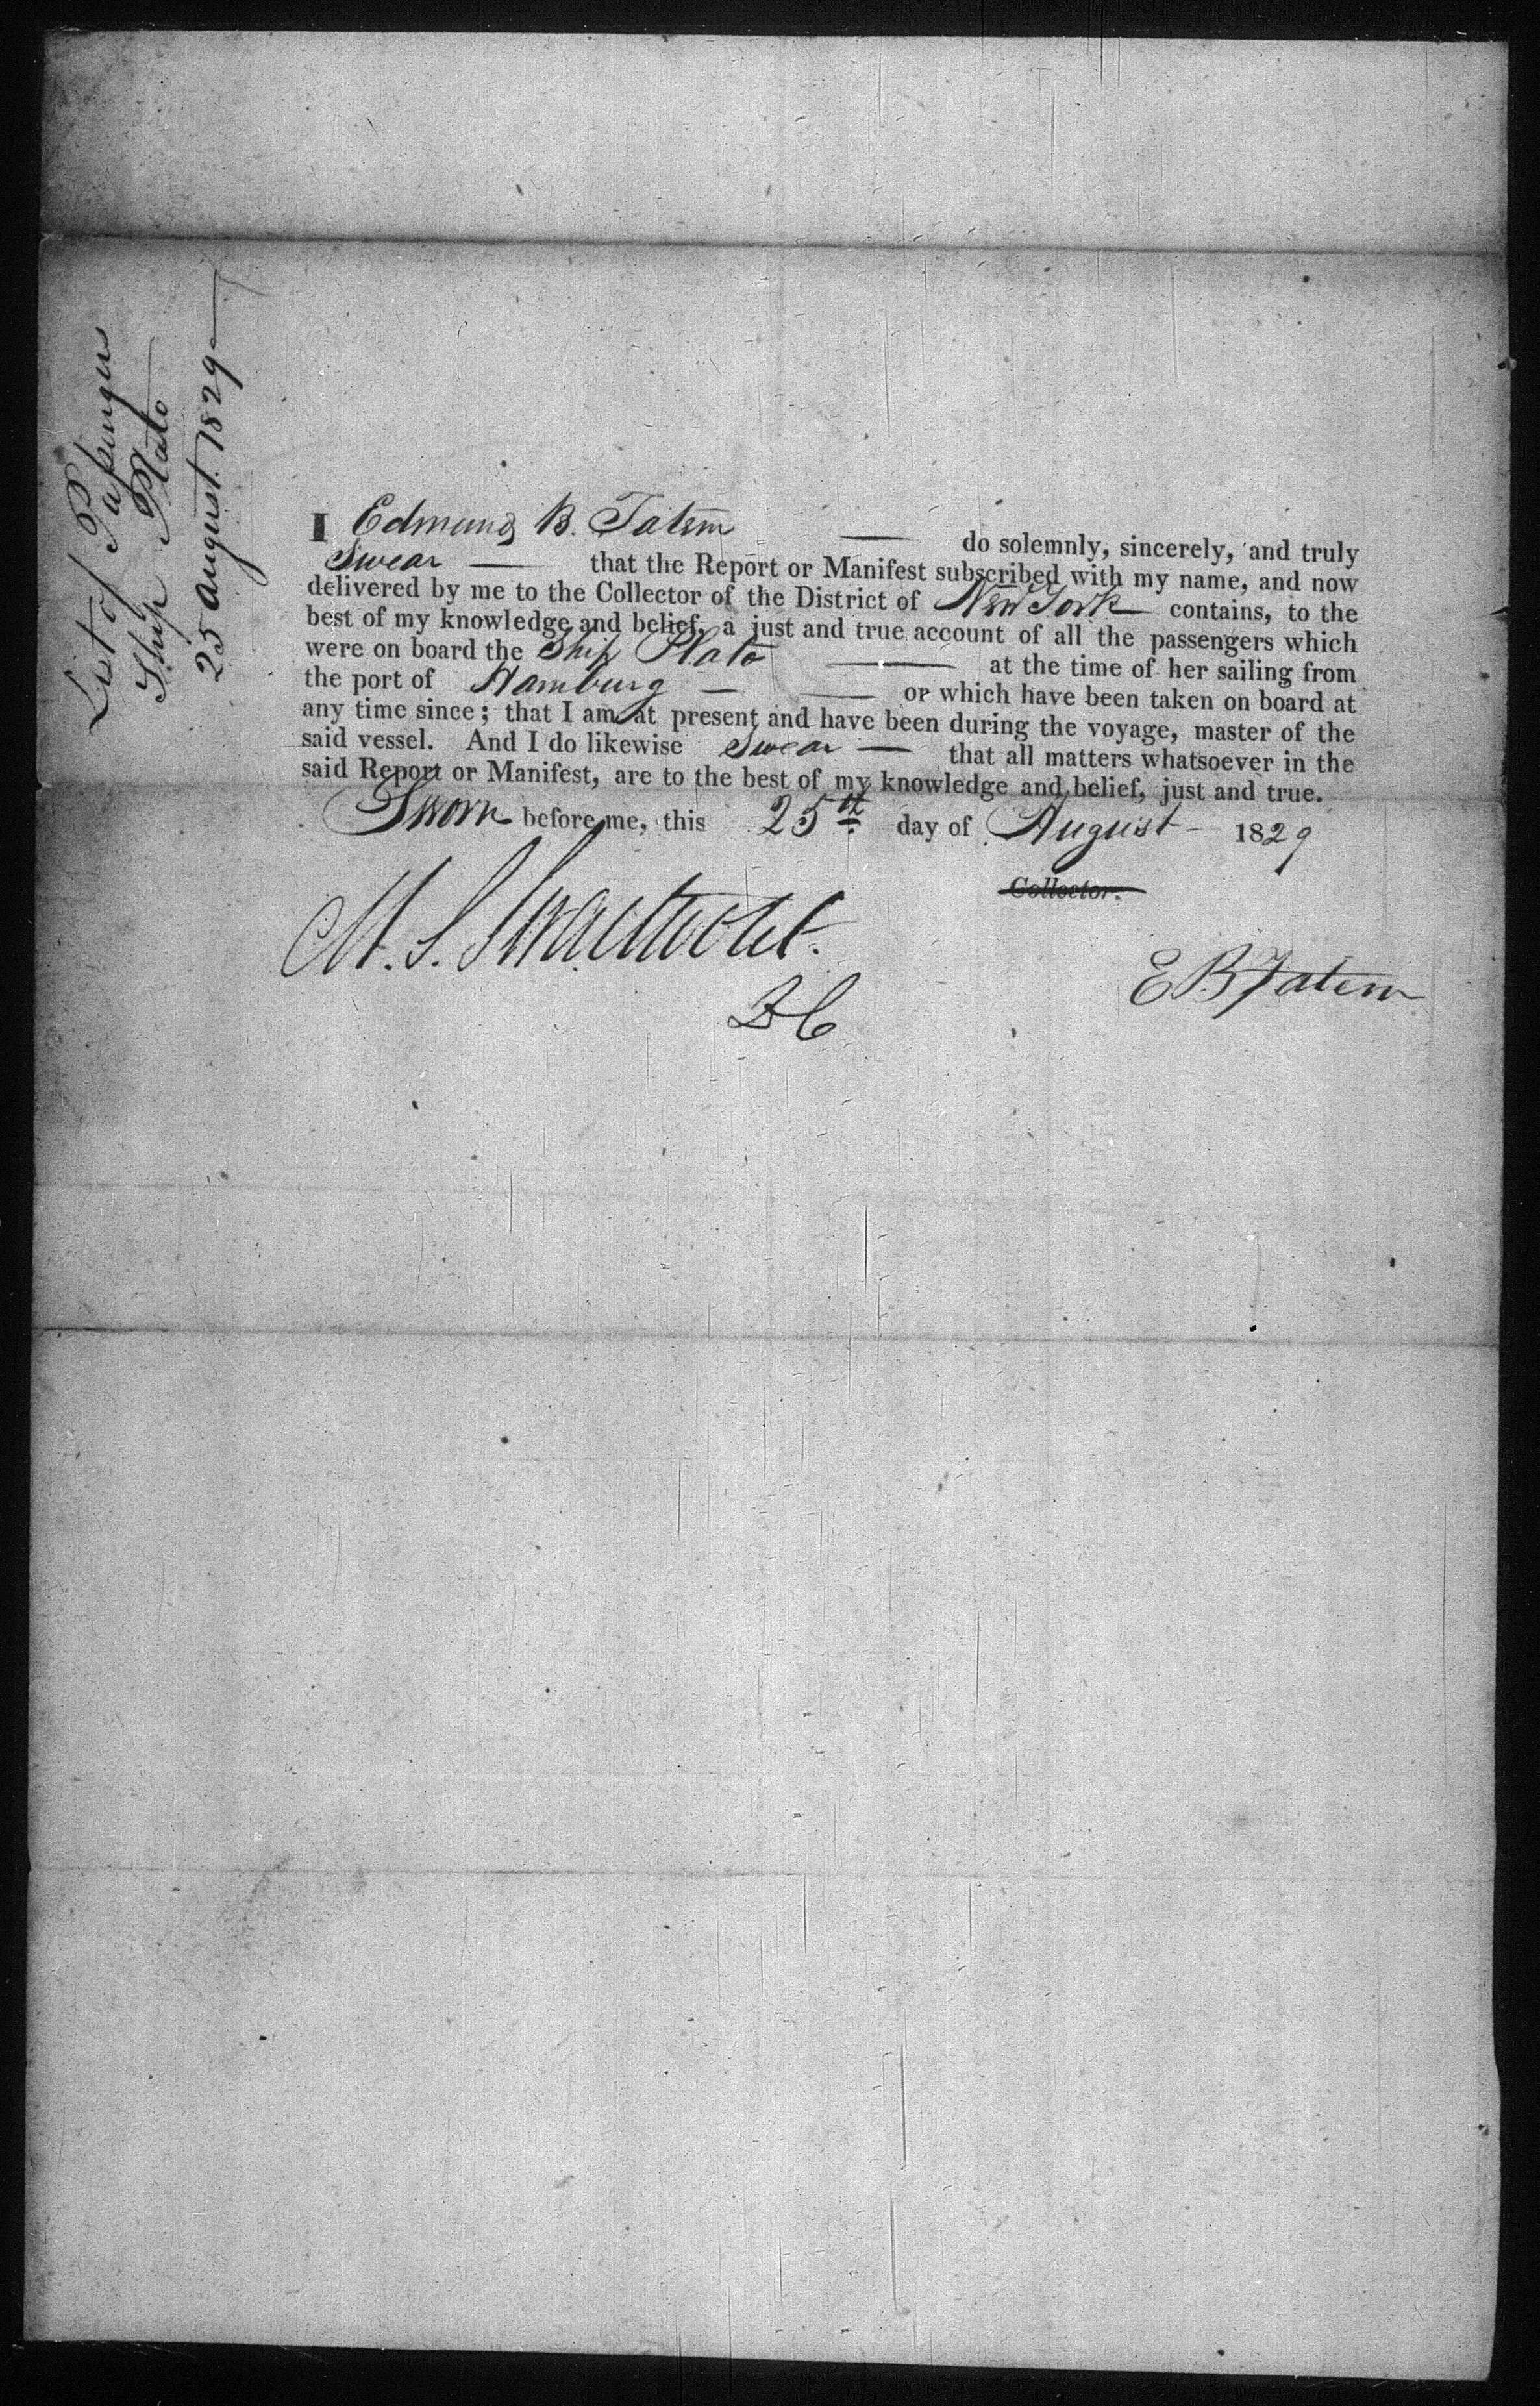 List of Passengers
Ship Plato
25 August. 1829
I Edmund B. Tatem do solemnly, sincerely, and truly
Swear — that the Report or Manifest subscribed with my name, and now
delivered by me to the Collector of the District of New York contains, to the
best of my knowledge and belief, a just and true account of all the passengers which
were on board the Ship Plato — at the time of her sailing from
the port of Hamburg — — or which have been taken on board at
any time since; that I am at present and have been during the voyage, master of the
said vessel. And I do likewise Swear — that all matters whatsoever in the
said Report or Manifest, are to the best of my knowledge and belief, just and true.
Sworn before me, this 25th day of August 1829
Collector.
M. S. Swartwout.
E B Tatem
D C